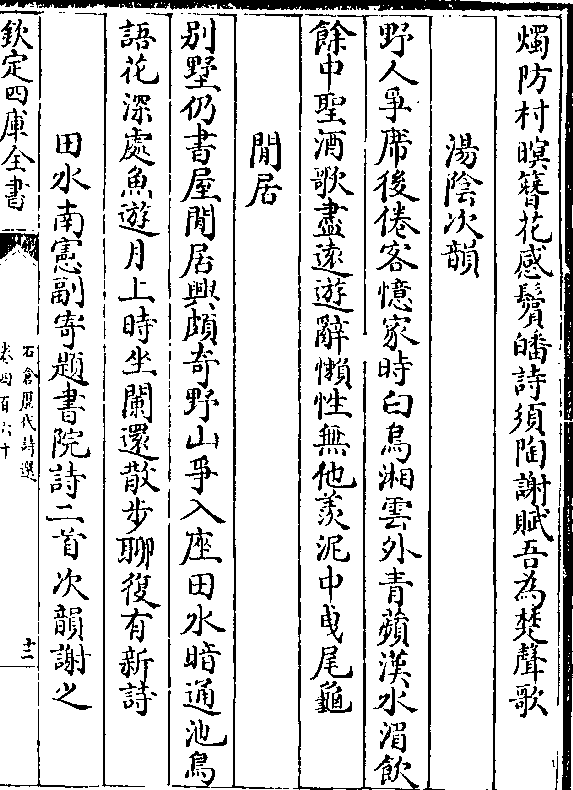 燭防村暝簪花感鬢皤詩須陶謝賦吾為楚聲歌
湯陰次韻
野人爭席後倦客憶家時白鳥湘雲外青蘋漢水湄飲
餘中聖酒歌盡遠遊辭懶性無他羨泥中曵尾龜
閒居
别墅仍書屋閒居興頗奇野山爭入座田水暗通池鳥
語花深處魚遊月上時坐闌還散步聊復有新詩
田水南憲副寄題書院詩二首次韻謝之
欽定四庫全書
石倉歷代詩選
卷四百六十
十二